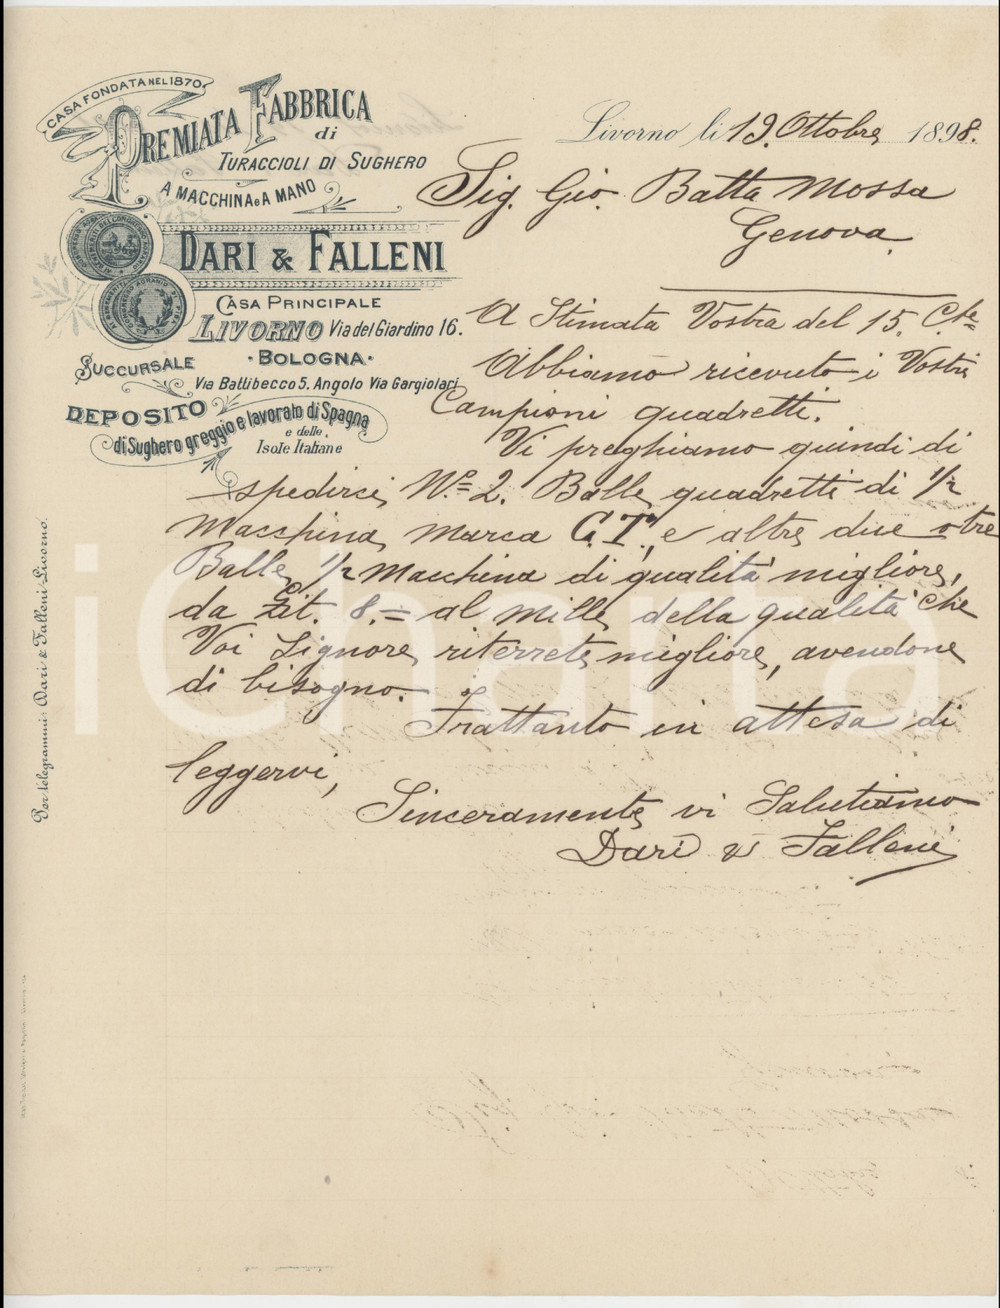 CASA FONDATA NEL 1870
PREMIATA FABBRICA
di
TURACCIOLI DI SUGHERO
A MACCHINA e A MANO
DARI & FALLENI
CASA PRINCIPALE
LIVORNO Via del Giardino 16.
SUCCURSALE
BOLOGNA
Via Battibecco 5. Angolo Via Gargiolari
DEPOSITO
di Sughero greggio e lavorato di Spagna
e delle
Isole Italiane
Per telegrammi: Dari & Falleni-Livorno.
Livorno li 19. Ottobre 1898.
Sig. Gio. Batta Mossa
Genova
A Stimata Vostra del 15. Cte
Abbiamo ricevuto i Vostri
Campioni quadretti.
Vi preghiamo quindi di
spedirci No 2. Balle quadretti di 1/2
Macchina, marca C.T, e altre due o tre
Balle 1/2 Macchina di qualità migliore,
da Lit. 8.= al mille della qualità che
Voi Signore riterrete migliore, avendone
di bisogno.
Frattanto in attesa di
leggervi,
Sinceramente vi Salutiamo
Dari & Falleni
iCharta